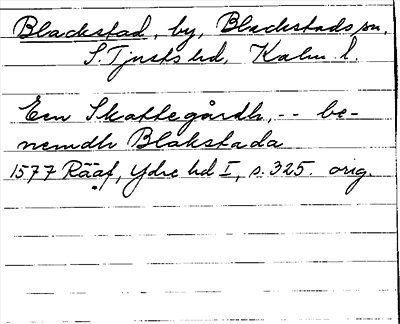 Blackstad, by, Blackstads sn,
S. Tjusts hd, Kalm. l.
Een Skattegårdh, -- be-
nemdh Blakstada
1577 Rääf, Ydre hd I, s. 325. orig.